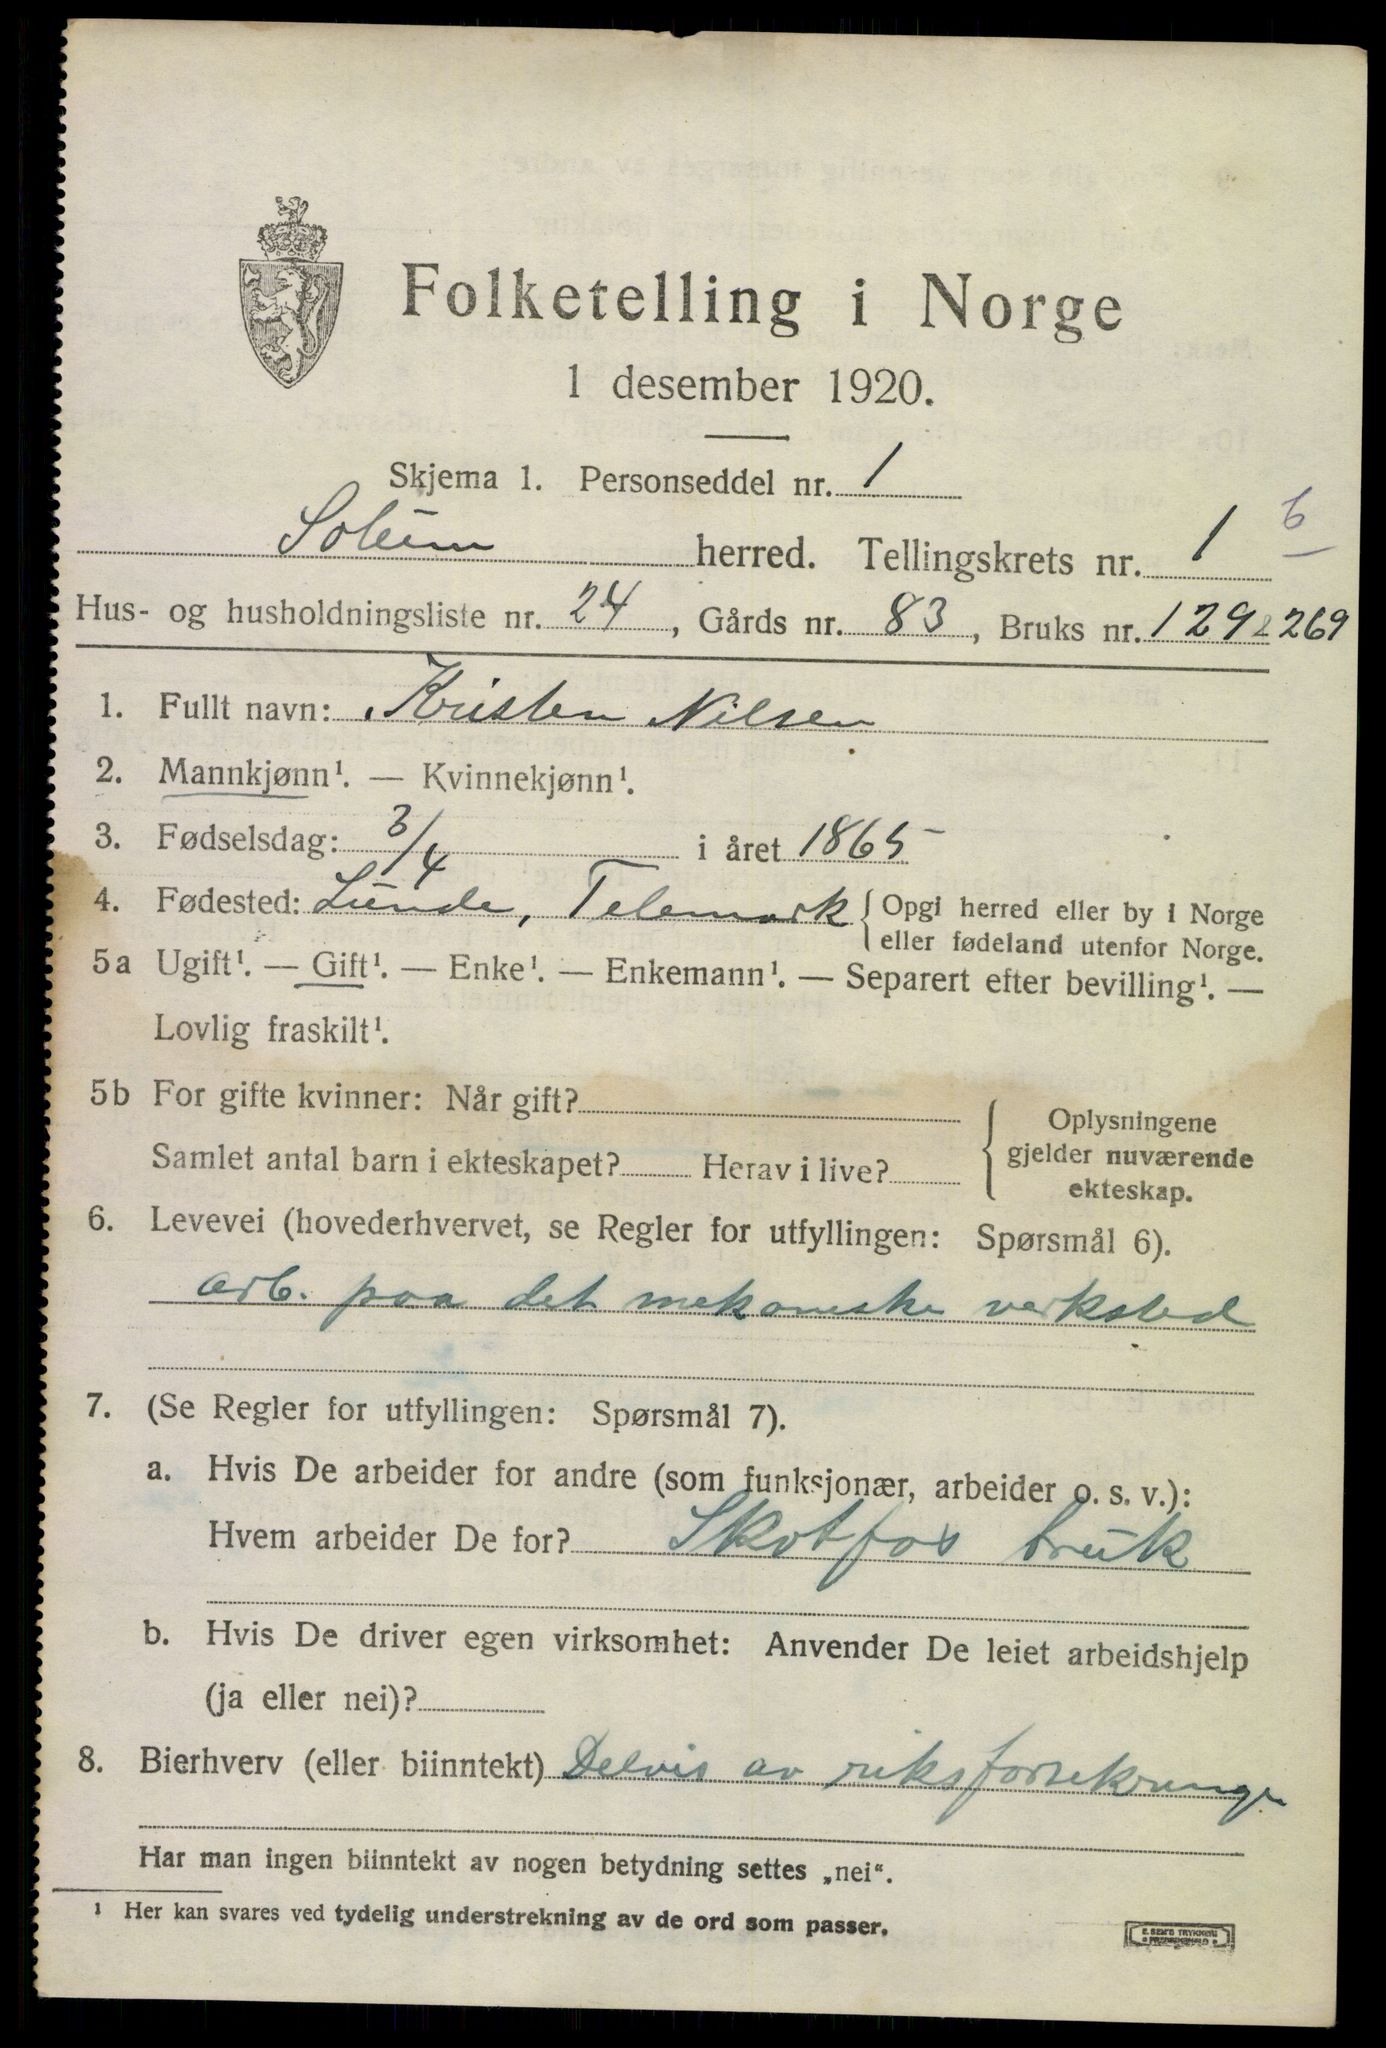 Folketelling i Norge
1 desember 1920.
Skjema 1. Personseddel nr. 1
Solum herred. Tellingskrets nr. 1 6
Hus- og husholdningsliste nr. 24, Gårds nr. 83, Bruks nr. 129 & 269
1. Fullt navn: Kristen Nilsen
2. Mannkjønn¹. — Kvinnekjønn¹.
3. Fødselsdag: 3/4 i året 1865
4. Fødested: Lunde, Telemark { Opgi herred eller by i Norge
eller fødeland utenfor Norge.
5a Ugift¹. — Gift¹. — Enke¹. — Enkemann¹. — Separert efter bevilling¹. —
Lovlig fraskilt¹.
5b For gifte kvinner: Når gift?
Samlet antal barn i ekteskapet? Herav i live?
{ Oplysningene
gjelder nuværende
ekteskap.
6. Levevei (hovederhvervet, se Regler for utfyllingen: Spørsmål 6).
arb. paa det mekaniske verksted
7. (Se Regler for utfyllingen: Spørsmål 7).
a. Hvis De arbeider for andre (som funksjonær, arbeider o. s. v.):
Hvem arbeider De for? Skotfos bruk
b. Hvis De driver egen virksomhet: Anvender De leiet arbeidshjelp
(ja eller nei)?
8. Bierhverv (eller biinntekt) Delvis av riksforsekringen
Har man ingen biinntekt av nogen betydning settes „nei“.
¹ Her kan svares ved tydelig understrekning av de ord som passer.
E. SEM'S TRYKKERI
FREDRIKSHALD